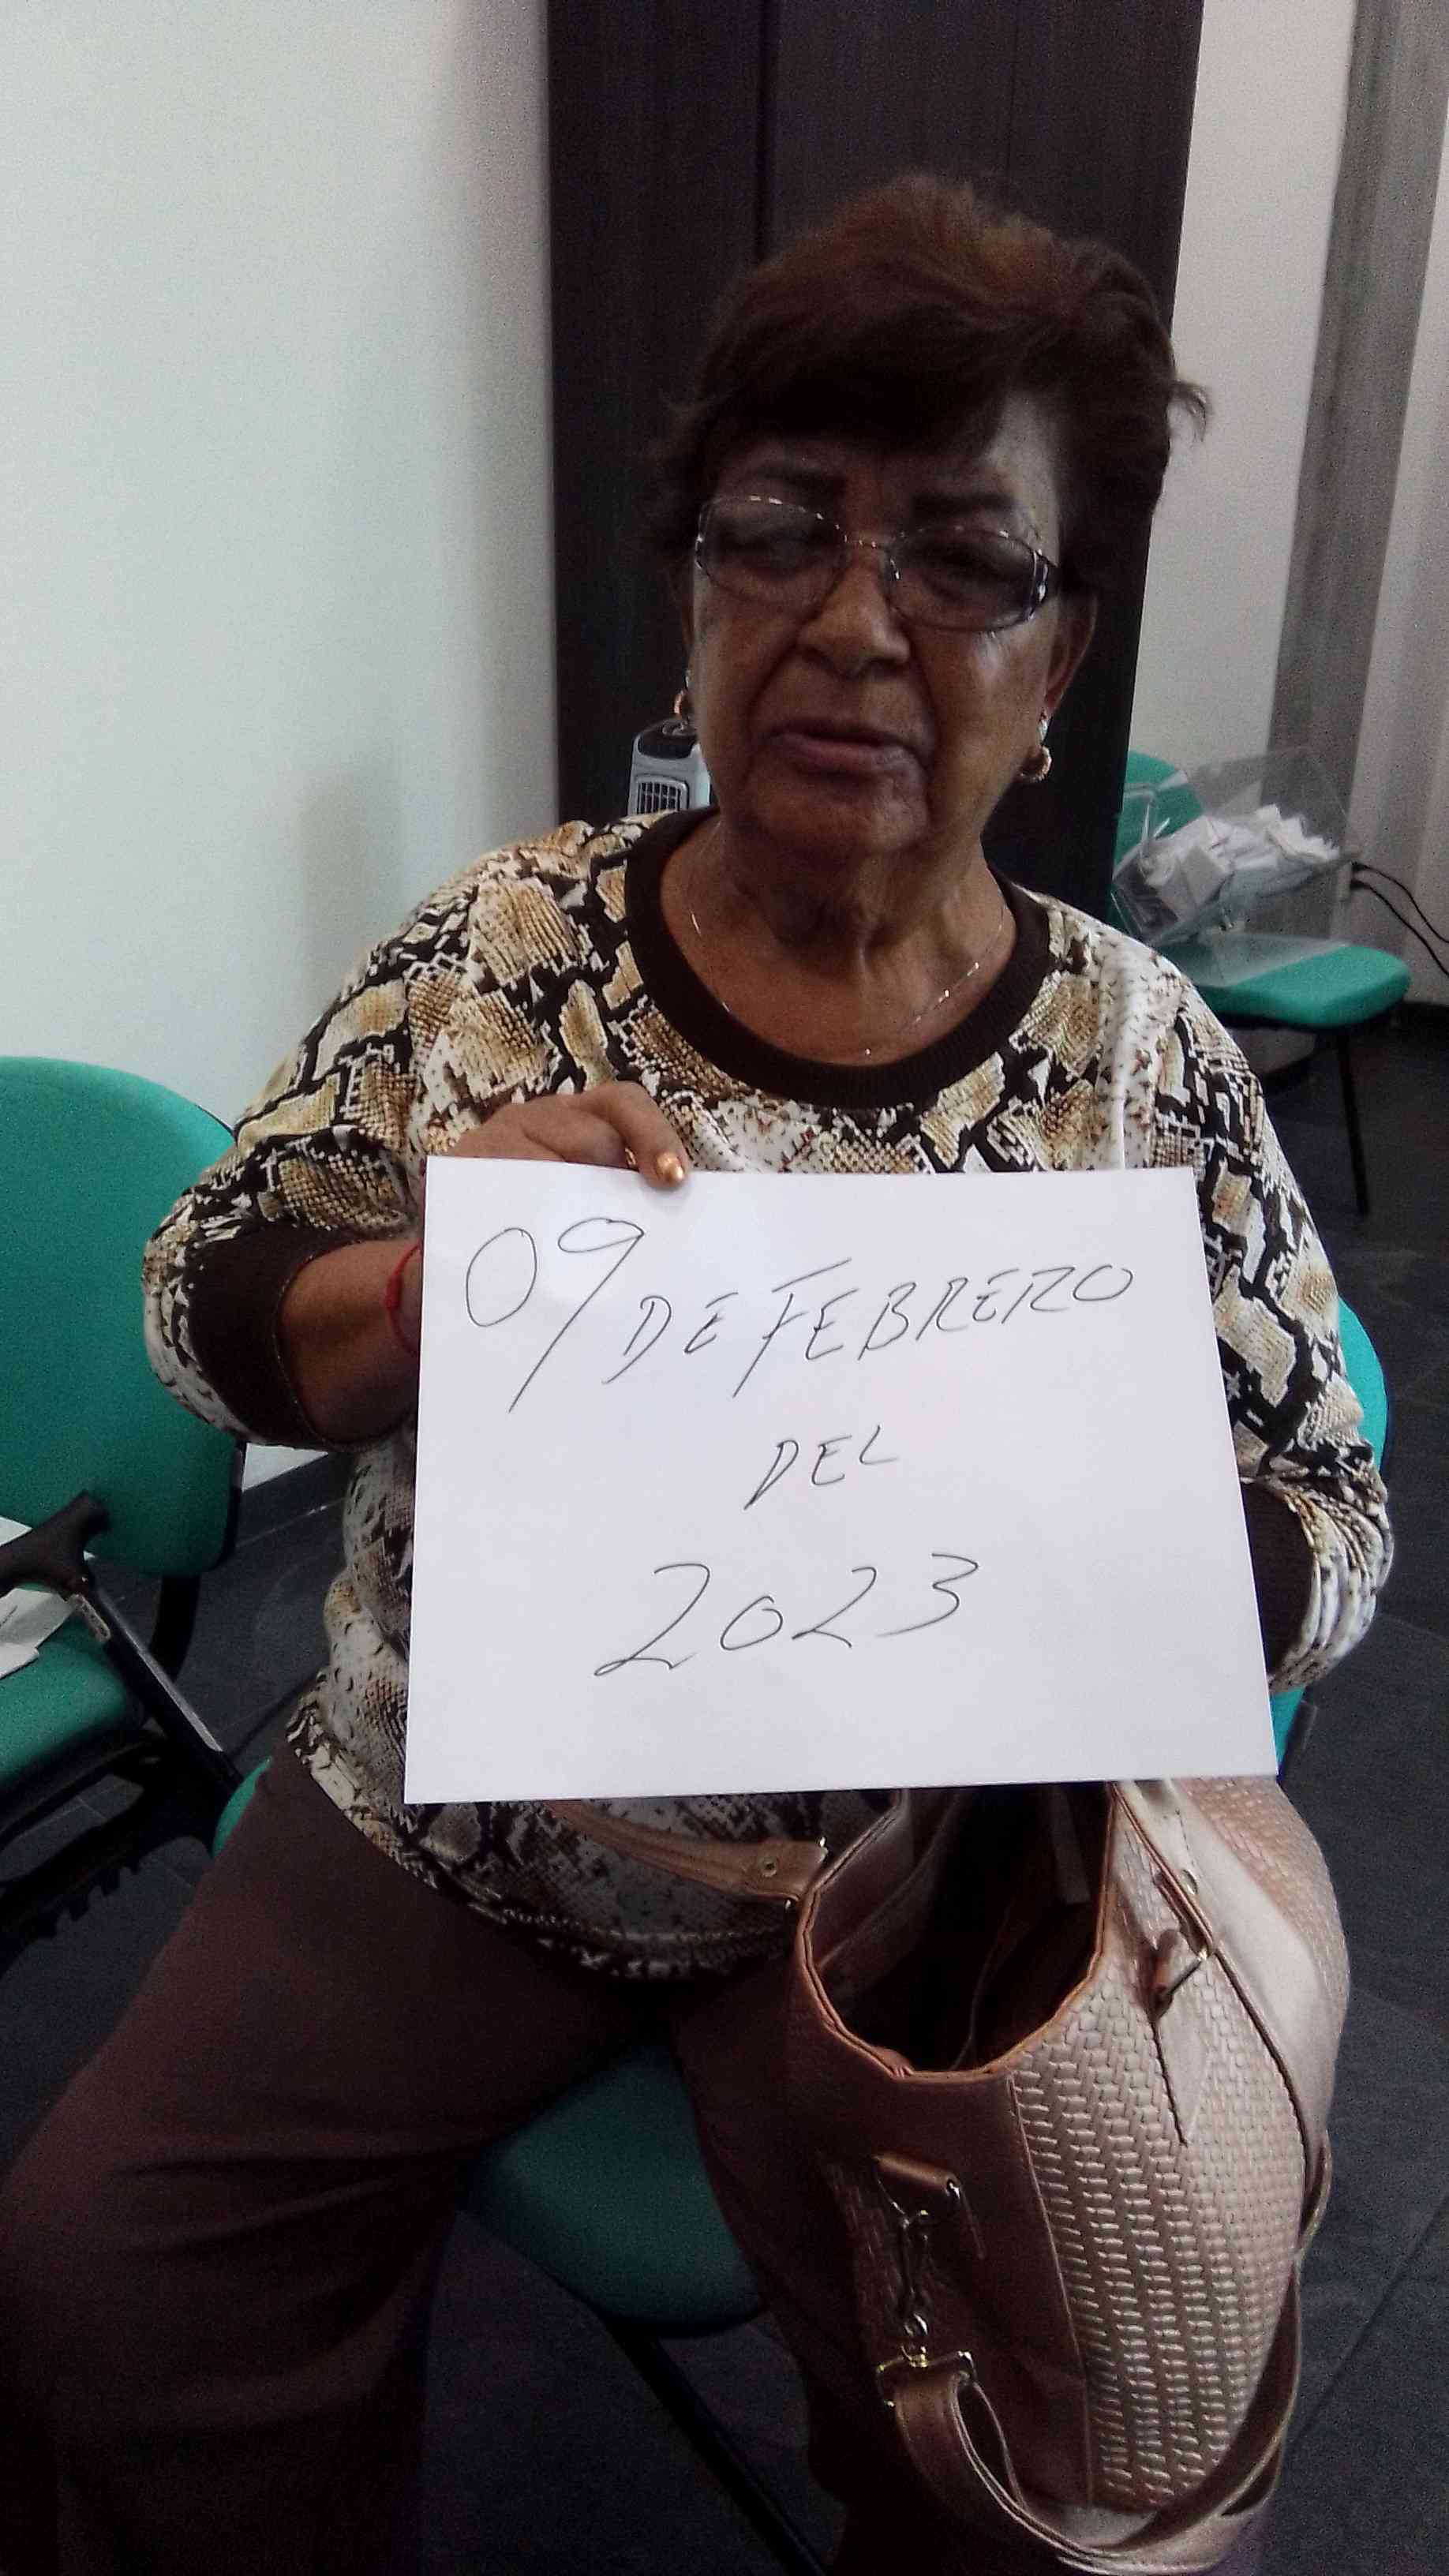 09 DE FEBRERO
DEL
2023